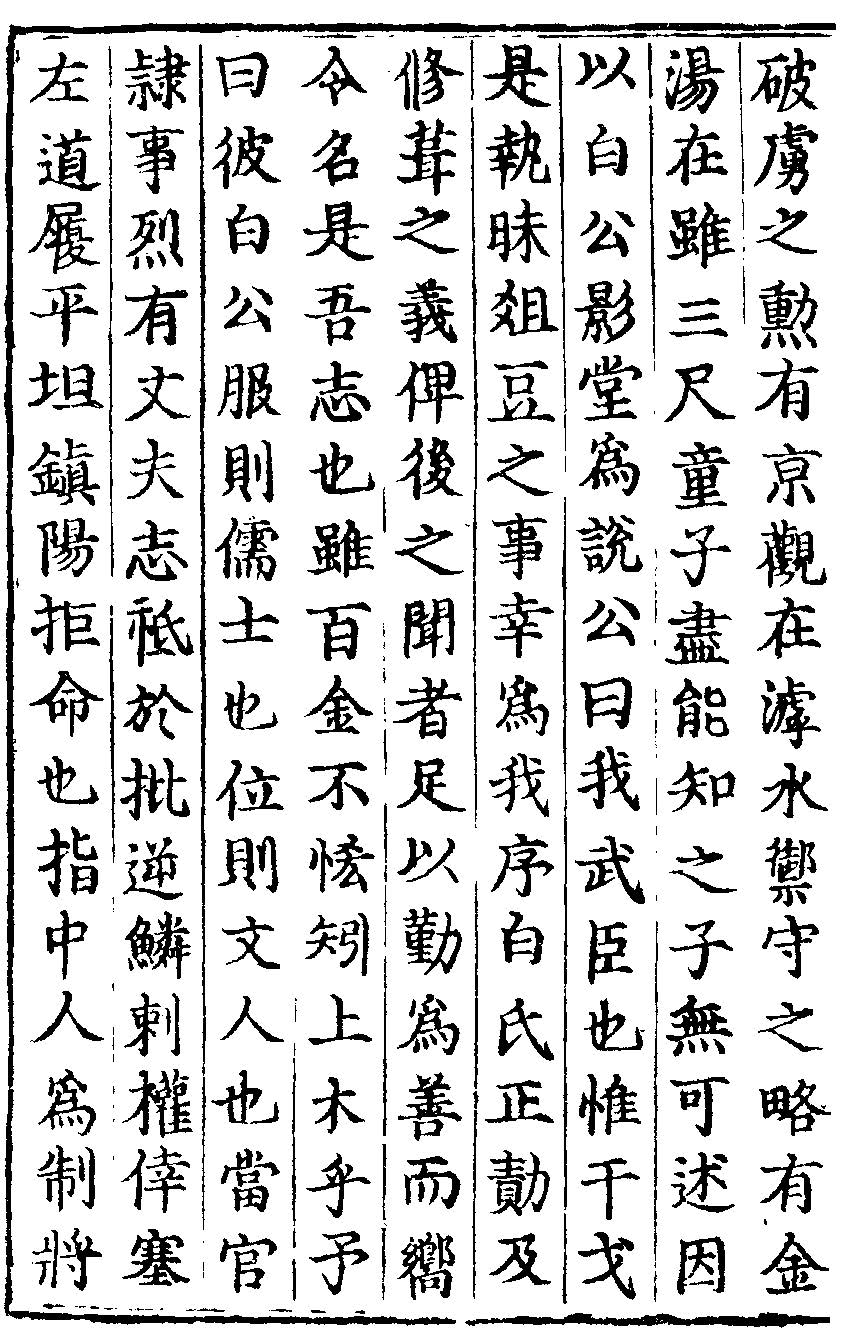 破虜之勲有京觀在滹水禦守之略有金
湯在雖三尺童子盡能知之子無可述因
以白公影堂爲說公曰我武臣也惟干戈
是執昧爼豆之事幸爲我序白氏正勣及
修葺之義俾後之聞者足以勤爲善而嚮
令名是吾志也雖百金不悋矧上木乎予
曰彼白公服則儒士也位則文人也當官
隷事烈有丈夫志祗於批逆鱗剌權倖塞
左道履平坦鎮陽拒命也指中人爲制將